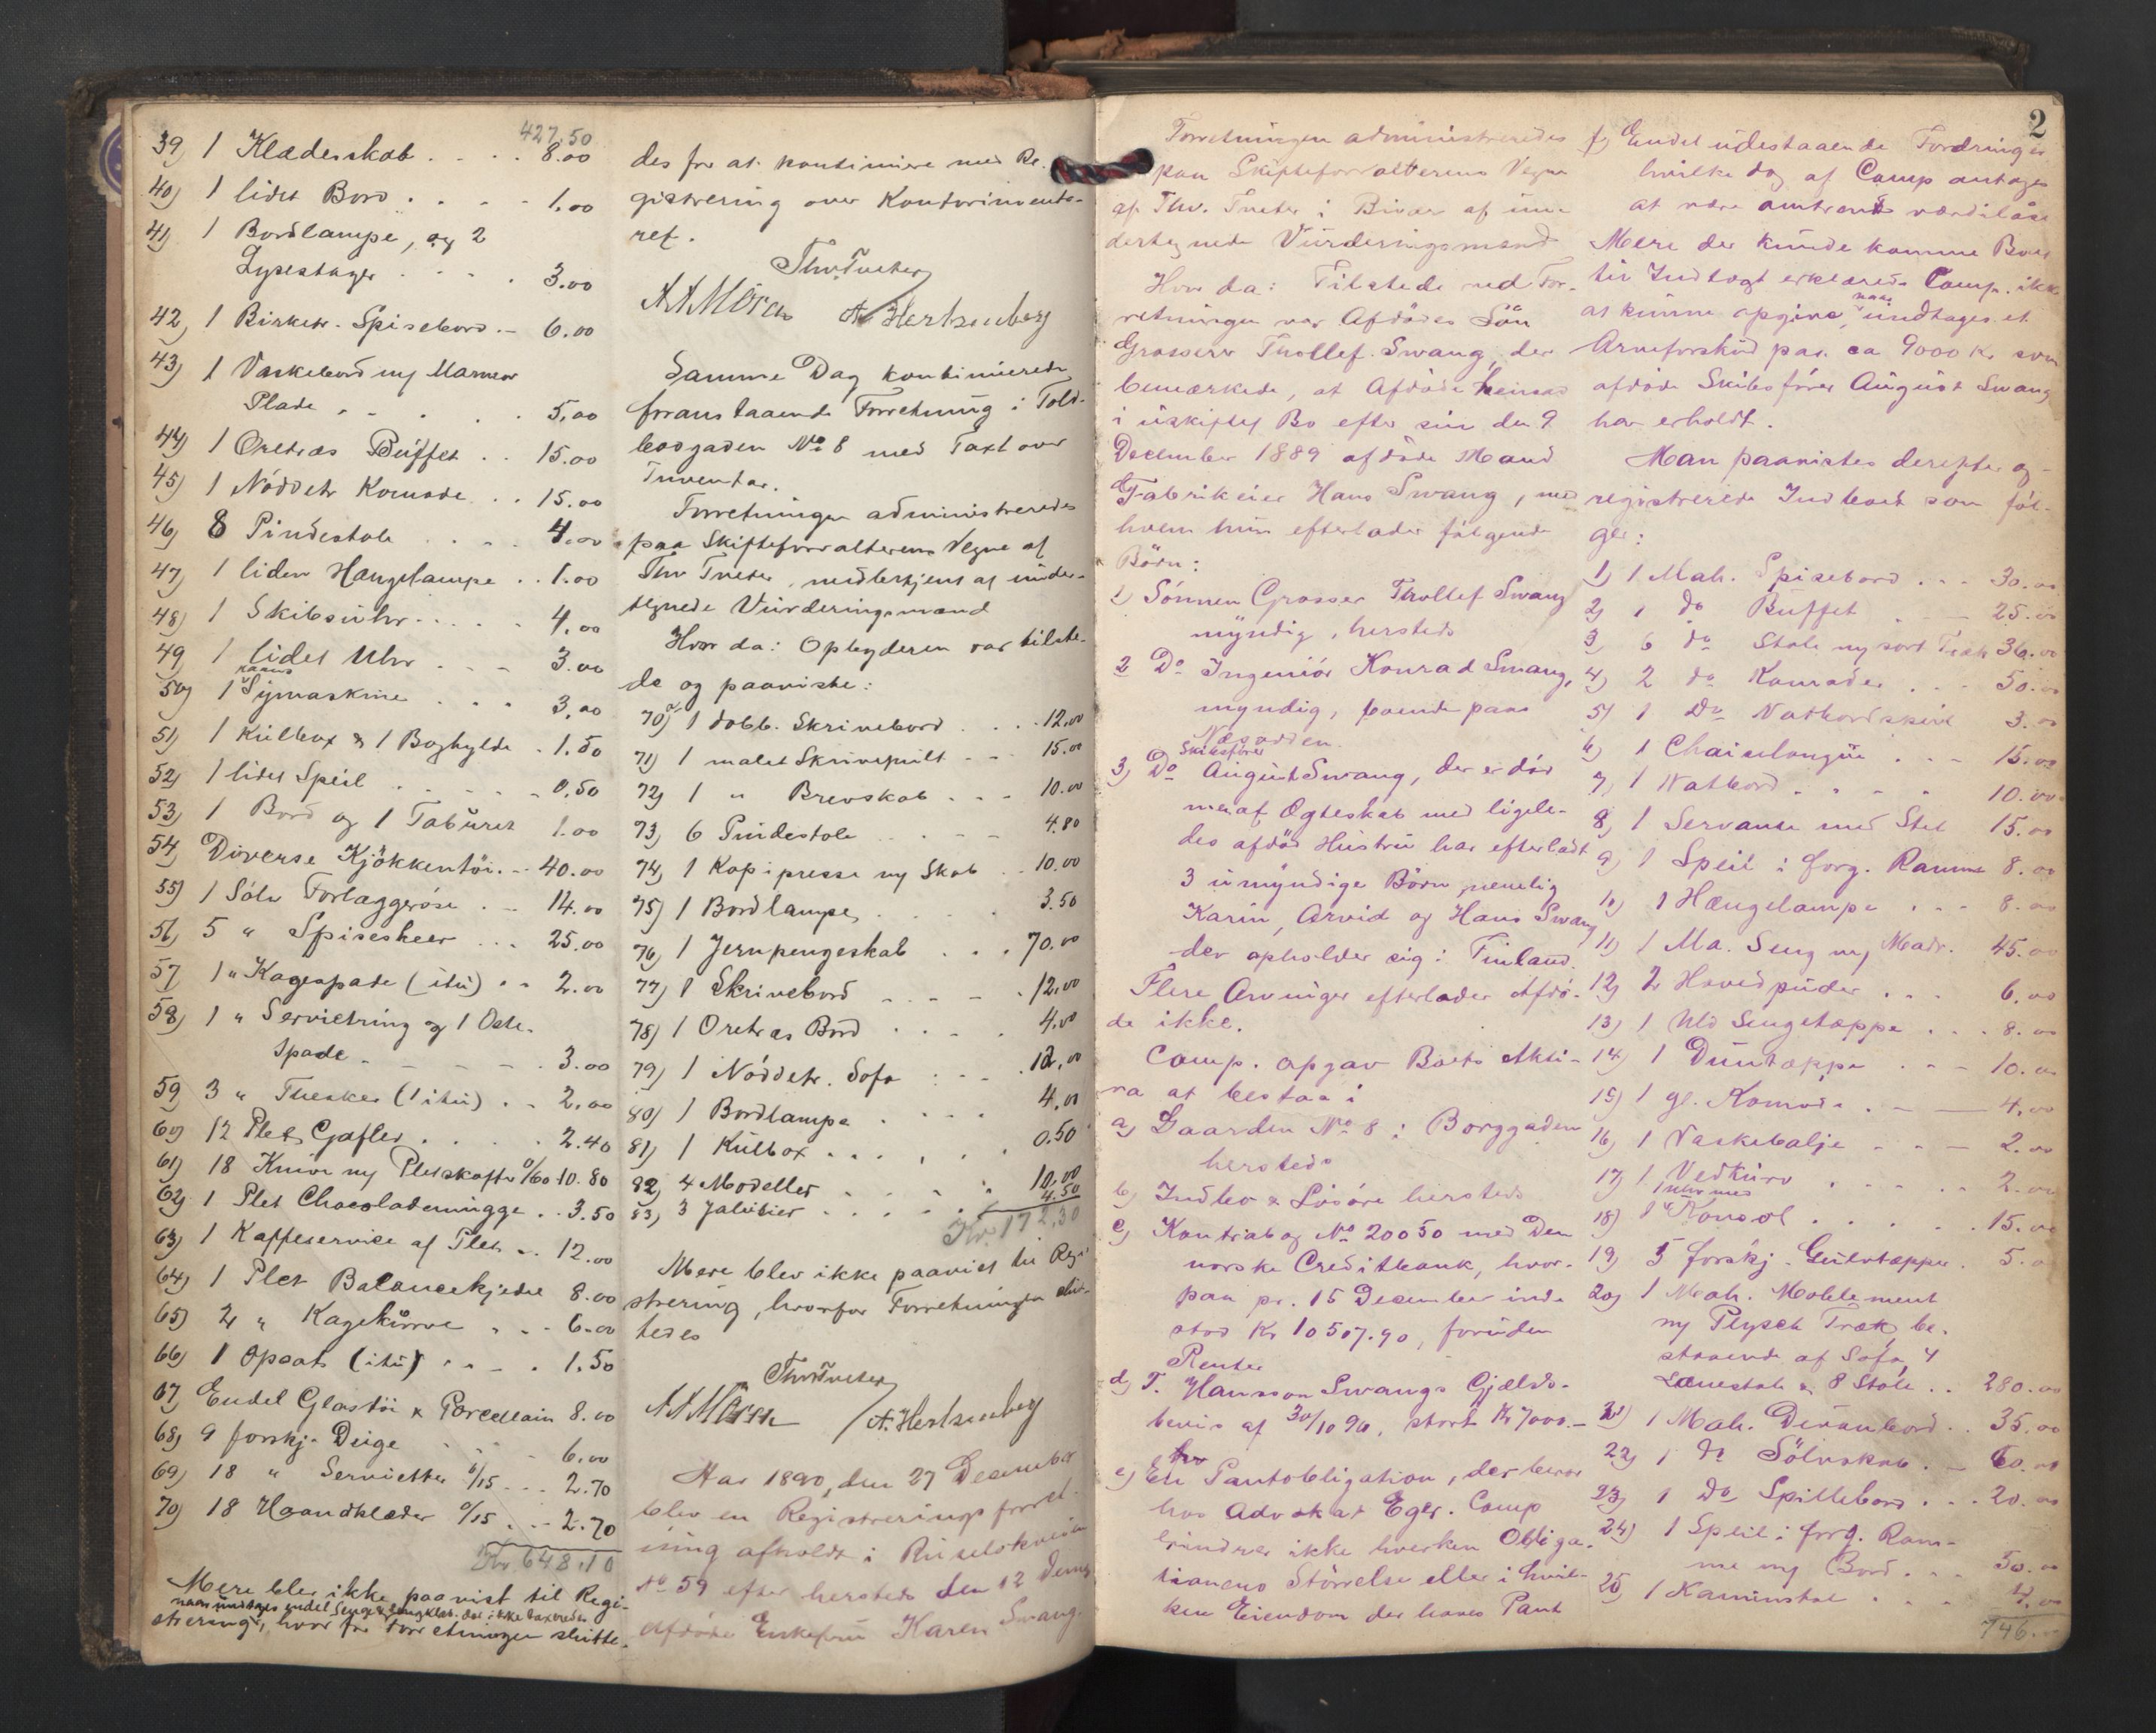 427.50
39) 1 Klædesskab . . . . 8.00
40) 1 lidet Bord . . . . 1.00
41) 1 Bordlampe, og 2
Lysestager . . . . 3.00
42) 1 Birketr. Spisebord . - 6.00
43) 1 Vaskebord m/ Marmor
Plade . . . . 5.00
44) 1 Oretræs Büffet . . 15.00
45) 1 Nöddetr Komode . . 15.00
46) 8 Pindestole . . . . 4.00
47) 1 liden Hængelampe . . 1.00
48) 1 Skibsuhr . . . . 4.00
49) 1 lidet Uhr . . . 3.00
50) 1 Haand Symaskine . . . 3.00
51) 1 Kulbox & 1 Boghylde . 1.50
52) 1 lidet Speil . . . . 0.50
53) 1 Bord og 1 Taburet 1.00
54) Diverse Kjökkentöi . - 40.00
55) 1 Sölv Forlæggerske . - 14.00
56) 5 " Spiseskeer . . . 25.00
57) 1 " Kagespade (itu) . . 2.00
58) 1 " Serviettring og 1 Oste-
spade . . . . 3.00
59) 3 " Theskeer (1 itu) . . 2.00
60) 12 Plet Gafler . . . . 2.40
61) 18 Knive m/ Pletskafte á/60 10.80
62) 1 Plet Chocolademugge . . 3.50
63) 1 Kaffeservice af Plet . . 12.00
64) 1 Plet Balancekjedel 8.00
65) 2 " Kagekurve . . . 6.00
66) 1 Opsats (itu) . . . . 1.50
67) Endel Glastöi & Porcellain 8.00
68) 9 forskj. Duge . . . 6.00
69) 18 " Servietter á/15 . . . 2.70
70) 18 Haandklæder á/15 . . . 2.70
Kr 648.10
Mere blev ikke paavist til Regi-
naar undtages endel Senge & Gangklæd. der ikke taxeredes
strering, hvorfor Forretningen slutte-
des for at kontinuere med Re-
gistrering over Kontorinvента-
ret.
Thv. Tveter
A A Mörch A. Hertzenberg
Samme Dag kontinueredes
foranstaaende Forretning i Told-
bodgaden No 8 med Taxt over
Inventar.
Forretningen administreredes
paa Skifteforvalterens Vegne af
Thv Tveter, medbetjent af under-
tegnede Vurderingsmænd
Hvor da: Opbyderen var tilste-
de og paaviste:
70) a/ 1 dobb. Skrivebord . . . 12.00
71) 1 malet Skrivepult . - - 15.00
72) 1 " Brevskab . . . 10.00
73) 6 Pindestole . . . - 4.80
74) 1 Kopipresse m/ Skab . . 10.00
75) 1 Bordlampe . . . . 3.50
76) 1 Jernpengeskab . . . 70.00
77) 1 Skrivebord . . . . 12.00
78) 1 Oretræs Bord . . . . 4.00
79) 1 Nöddetr. Sofa . . . . 12.00
80) 1 Bordlampe . . . . 4.00
81) 1 Kulbox . . . . . 0.50
82) 4 Modeller . . . . 10.00
83) 3 Jalusier . . . . 4.50
Kr. 172.30
Mere blev ikke paavist til Regi-
strering, hvorfor Forretningen slut-
tedes
Thv Tveter
A A Mörch A. Hertzenberg
Aar 1890, den 27 December
blev en Registreringsforret-
ning afholdt i Ruselökveien
No 59 efter hersteds den 12 dennes
afdöde Enkefru Karen Swang.
2
Forretningen administreredes
paa Skifteforvalterens Vegne
af Thv. Tveter i Bivær af un-
dertegnede Vurderingsmænd
Hvor da: Tilstede ved For-
retningen var Afdödes Sön
Grosserer Thollef Swang, der
bemærkede, at Afdöde hensad
i uskiftet Bo efter sin den 9
December 1889 afdöde Mand
Fabrikeier Hans Swang, med
hvem hun efterlader fölgende
Börn:
1) Sönnen Grosser Thollef Swang
myndig, hersteds
2 Do Ingeniör Konrad Swang,
myndig, boende paa
Næsodden.
Skibsförer
3) Do August Swang, der er död
men af Ægteskab med ligele-
des afdöd Hustru har efterladt
3 umyndige Börn, nemlig
Karin, Arvid og Hans Swang
der opholder sig i Finland.
Flere Arvinger efterlader Afdö-
de ikke.
Comp. opgav Boets Akti-
va at bestaa i
a) Gaarden No 8 i Borggaden
hersteds
b) Indbo & Lösöre hersteds
c) Kontrabog No 20050 med Den
norske Creditbank, hvor-
paa pr. 15 December inde-
stod Kr 10507.90, foruden
Renter
d) T. Hansson Swangs Gjelds-
bevis af 30/10 90, stort Kr 7000.-
e) En Pantobligation, der beror
hos Advokat Eger. Comp
erindrer ikke hverken Obliga-
tionens Störrelse eller i hvil-
ken Eiendom der haves Pant
f) Endel udestaaende Fordringer
hvilke dog af Comp antages
at være omtrent værdilöse
Mere der kunde komme Boet
til Indtægt erklærede Comp. ikke
at kunne opgive, naar undtages et
Arveforskud paa ca 9000 Kr som
afdöde Skibsförer August Swang
har erholdt.
Man paavistes derefter og
registrerede Indboet som föl-
ger:
1) 1 Mah. Spisebord . . . 30.00
2) 1 do Buffet . - - 25.00
3) 6 do Stole m/ sort Træk 36.00
4) 2 do Komoder . . . 50.00
5) 1 Do Natbordskuf 3.00
6) 1 Chaiselongue . . . 15.00
7) 1 Natbord . . . . 10.00
8) 1 Servante med Stel 15.00
9) 1 Speil i forg. Ramme 8.00
10) 1 Hængelampe . . . 8.00
11) 1 Ma. Seng m/ Madr. 45.00
12) 2 Hovedpuder . . . 6.00
13) 1 Uld Sengetæppe . . . 8.00
14) 1 Duntæppe . . . 10.00
15) 1 gl. Komode . . - 4.00
16) 1 Vaskebalje . . - 2.00
17) 1 Vedkurv . . . . . 2.00
1 Uhr med
18) 1 Konsol . . . . . 15.00
19) 5 forskj. Gulvtæpper . 5.00
20) 1 Mah. Moblement
m/ Plysch Træk, be-
staaende af Sofa, 4
Lænestole & 8 Stole . . 280.00
21) 1 Mah. Divanbord . . 35.00
22) 1 do Sölvskab . - 60.00
23) 1 Do Spillebord . . . 20.00
24) 1 Speil i forg. Ram-
me m/ Bord . . . 50.00
25) 1 Kaminstol . . . 4.00
746.00